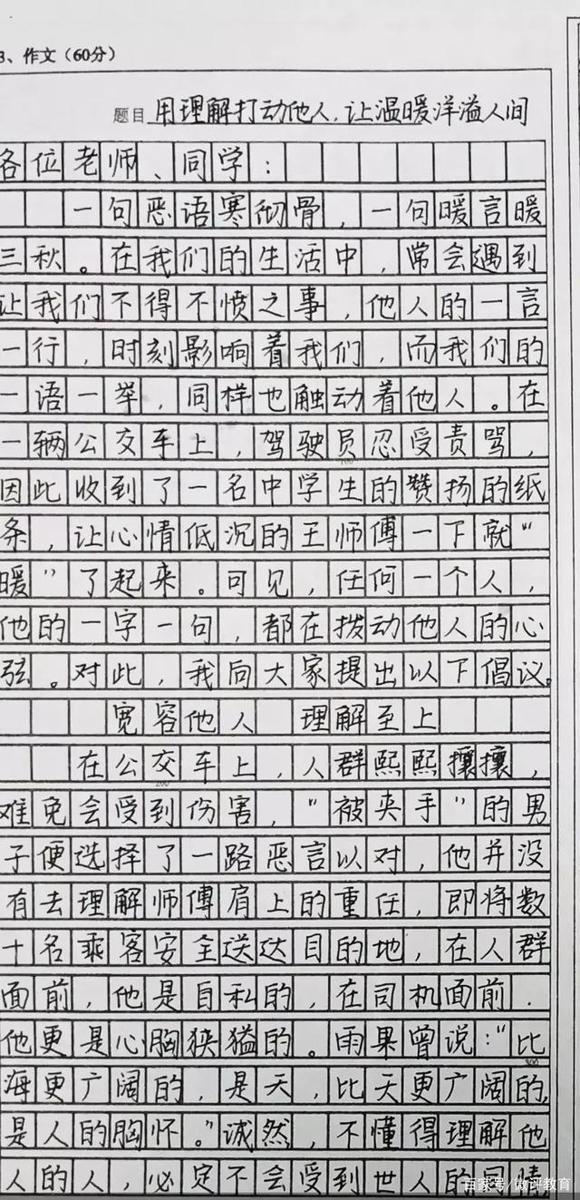 3、作文（60分）
题目 用理解打动他人，让温暖洋溢人间
各位老师、同学：
一句恶语寒彻骨，一句暖言暖
三秋。在我们的生活中，常会遇到
让我们不得不愤之事，他人的一言
一行，时刻影响着我们，而我们的
一语一举，同样也触动着他人。在
一辆公交车上，驾驶员忍受责骂，
因此收到了一名中学生的赞扬的纸
条，让心情低沉的王师傅一下就“
暖”了起来。可见，任何一个人，
他的一字一句，都在拨动他人的心
弦。对此，我向大家提出以下倡议。
宽容他人 理解至上
在公交车上，人群熙熙攘攘，
难免会受到伤害，“被夹手”的男
子便选择了一路恶言以对，他并没
有去理解师傅肩上的重任，即将数
十名乘客安全送达目的地，在人群
面前，他是自私的，在司机面前．
他更是心胸狭猛的。雨果曾说：“比
海更广阔的，是天，比天更广阔的，
是人的胸怀。”诚然，不懂得理解他
人的人，必定不会受到世人的同情
百家号/微评教育